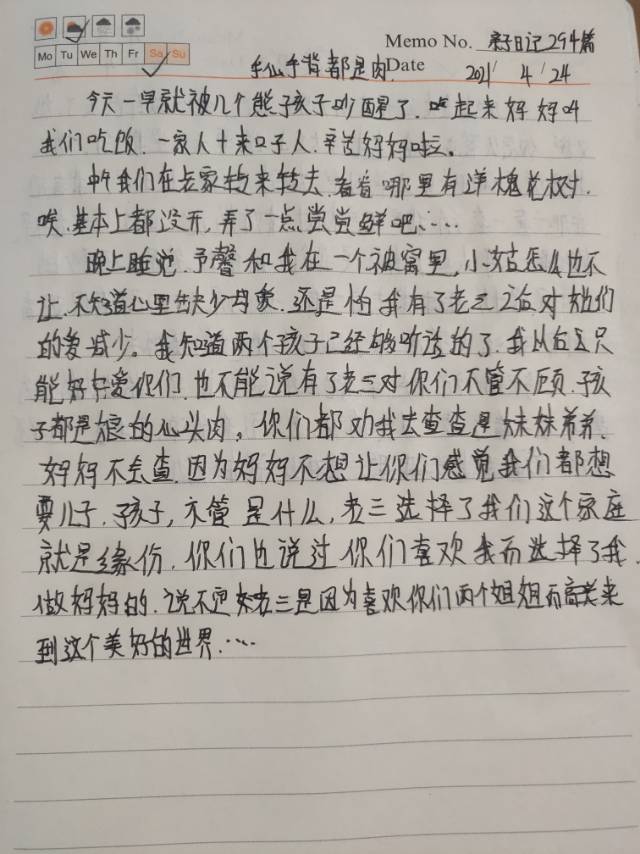 Memo No. 亲子日记294篇
Mo Tu We Th Fr Sa Su
手心手背都是肉.
Date 2021/ 4 / 24
今天一早就被几个熊孩子吵醒了.起来妈妈叫
我们吃饭.一家人十来口子人.辛苦妈妈啦。
中午我们在老家转来转去.看看哪里有洋槐花树.
唉.基本上都没开,弄了一点尝尝鲜吧……
晚上睡觉.予馨和我在一个被窝里,小姑怎么也不
让.不知道心里缺少母爱.还是怕我有了老三之后对她们
的爱减少。我知道两个孩子已经够听话的了.我以后只
能好好爱你们.也不能说有了老三对你们不管不顾.孩
子都是娘的心头肉,你们都劝我去查查是妹妹弟弟.
妈妈不会查.因为妈妈不想让你们感觉我们都想
要儿子.孩子,不管是什么,老三选择了我们这个家庭
就是缘份.你们也说过你们喜欢我而选择了我.
做妈妈的.说不定老三是因为喜欢你们两个姐姐而来
到这个美好的世界.……